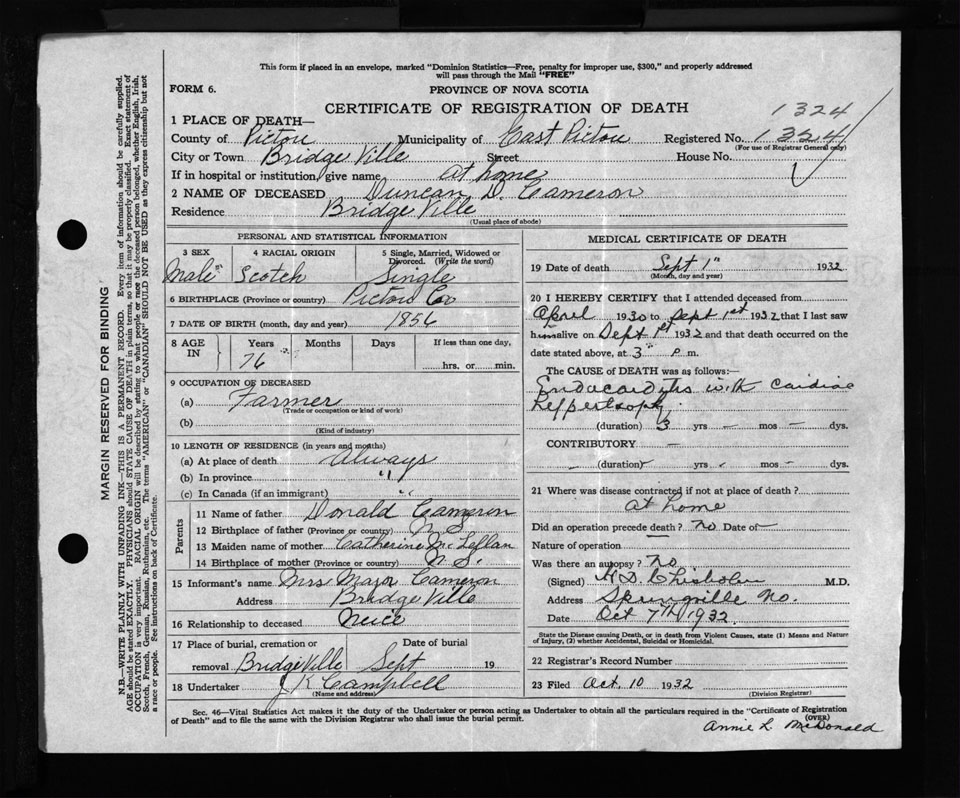 This form if placed in an envelope, marked "Dominion Statistics—Free, penalty for improper use, $300," and properly addressed
will pass through the Mail "FREE"
FORM 6.
PROVINCE OF NOVA SCOTIA
CERTIFICATE OF REGISTRATION OF DEATH
1324
1 PLACE OF DEATH—
County of Pictou Municipality of East Pictou Registered No. 1324
(For use of Registrar General only)
City or Town Bridge Ville Street House No.
If in hospital or institution, give name at home
2 NAME OF DECEASED Duncan D. Cameron
Residence Bridge Ville
(Usual place of abode)
PERSONAL AND STATISTICAL INFORMATION
3 SEX 4 RACIAL ORIGIN 5 Single, Married, Widowed or
Divorced. (Write the word)
Male Scotch Single
6 BIRTHPLACE (Province or country) Pictou Co
7 DATE OF BIRTH (month, day and year) 1856
8 AGE IN Years Months Days If less than one day,
76 hrs. or min.
9 OCCUPATION OF DECEASED
(a) Farmer
(Trade or occupation or kind of work)
(b)
(Kind of industry)
10 LENGTH OF RESIDENCE (in years and months)
(a) At place of death Always
(b) In province "
(c) In Canada (if an immigrant) "
Parents
11 Name of father Donald Cameron
12 Birthplace of father (Province or country) N S
13 Maiden name of mother Catherine
14 Birthplace of mother (Province or country) N. S.
15 Informant's name Mrs Major Cameron
Address Bridge Ville
16 Relationship to deceased Neice
17 Place of burial, cremation or Date of burial
removal BridgeVille Sept 19
18 Undertaker J K Campbell
(Name and address)
MEDICAL CERTIFICATE OF DEATH
19 Date of death Sept 1st 1932
(Month, day and year)
20 I HEREBY CERTIFY that I attended deceased from
April 1930 to Sept 1st 1932 that I last saw
him alive on Sept 1st 1932 and that death occurred on the
date stated above, at 3 P m.
The CAUSE of DEATH was as follows:—
Endocarditis with cardiac
(duration) 3 yrs – mos – dys.
CONTRIBUTORY –
– (duration) yrs – mos – dys.
21 Where was disease contracted if not at place of death?
at home
Did an operation precede death? no Date of –
Nature of operation
Was there an autopsy? No
(Signed) H D. Chisholm M.D.
Address Springville
Date Oct 7th 1932.
State the Disease causing Death, or in death from Violent Causes, state (1) Means and Nature
of Injury, (2) whether Accidental, Suicidal or Homicidal.
22 Registrar's Record Number
23 Filed Oct. 10 1932
(Division Registrar)
Sec. 46—Vital Statistics Act makes it the duty of the Undertaker or person acting as Undertaker to obtain all the particulars required in the "Certificate of Registration
of Death" and to file the same with the Division Registrar who shall issue the burial permit.
(OVER)
Annie L. McDonald
MARGIN RESERVED FOR BINDING
N.B.—WRITE PLAINLY WITH UNFADING INK—THIS IS A PERMANENT RECORD. Every item of information should be carefully supplied.
AGE should be stated EXACTLY. PHYSICIANS should STATE CAUSE OF DEATH in plain terms, so that it may be properly classified. Exact statement of
OCCUPATION is very important. RACIAL ORIGIN will be described by stating to what people or race the deceased person belonged, whether English, Irish,
Scotch, French, German, Russian, Ruthenian, etc. The terms "AMERICAN" or "CANADIAN" SHOULD NOT BE USED as they express citizenship but not
a race or people. See instructions on back of Certificate.